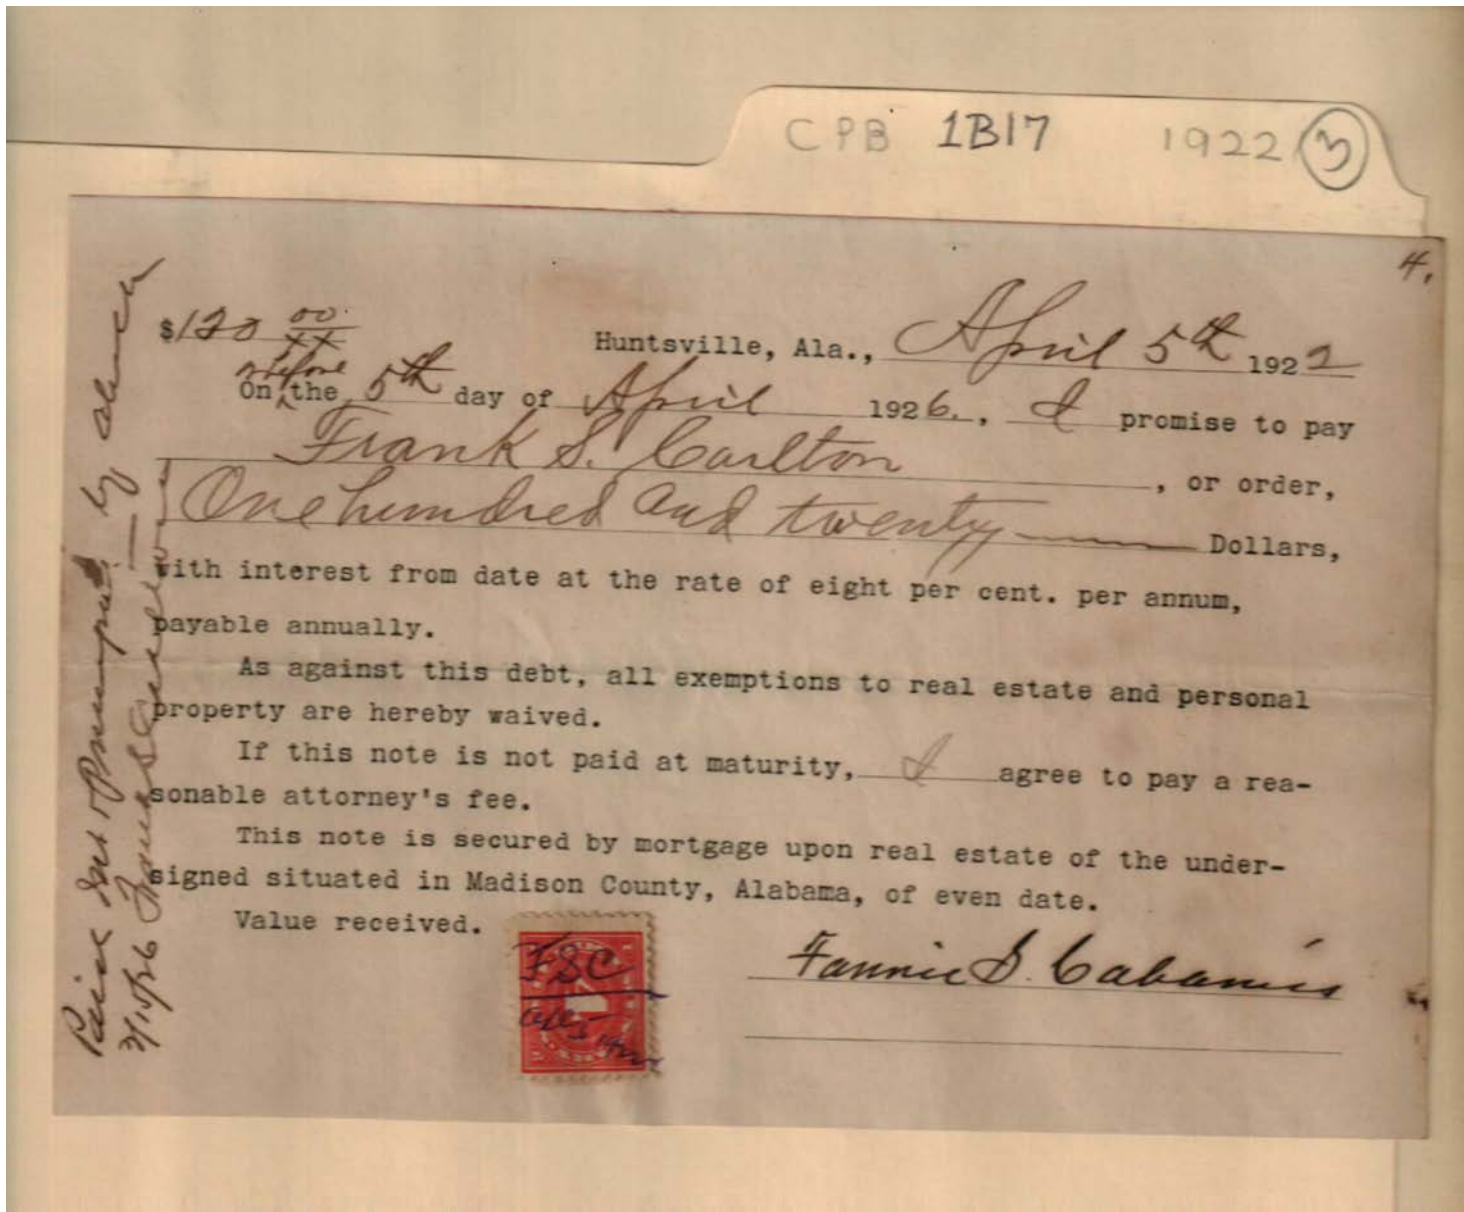 CPB 1B17 1922 3
4.
$120 00/xx
Huntsville, Ala., April 5th 1922
or before
On the 5th day of April 1926., I promise to pay
Frank S. Carlton, or order,
One hundred and twenty Dollars,
with interest from date at the rate of eight per cent. per annum,
payable annually.
As against this debt, all exemptions to real estate and personal
property are hereby waived.
If this note is not paid at maturity, I agree to pay a rea-
sonable attorney's fee.
This note is secured by mortgage upon real estate of the under-
signed situated in Madison County, Alabama, of even date.
Value received.
FSC
Apr 5 1922
Fannie S. Cabaniss
Paid by
3/15/26 Frank S Carlton